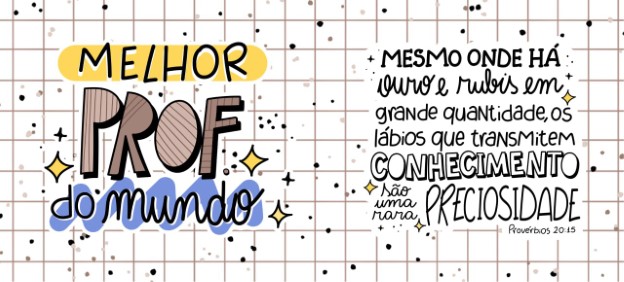 MELHOR
PROF.
do mundo
MESMO ONDE HÁ
ouro e rubis em
grande quantidade, os
lábios que transmitem
CONHECIMENTO
são
uma
rara
PRECIOSIDADE
Provérbios 20:15